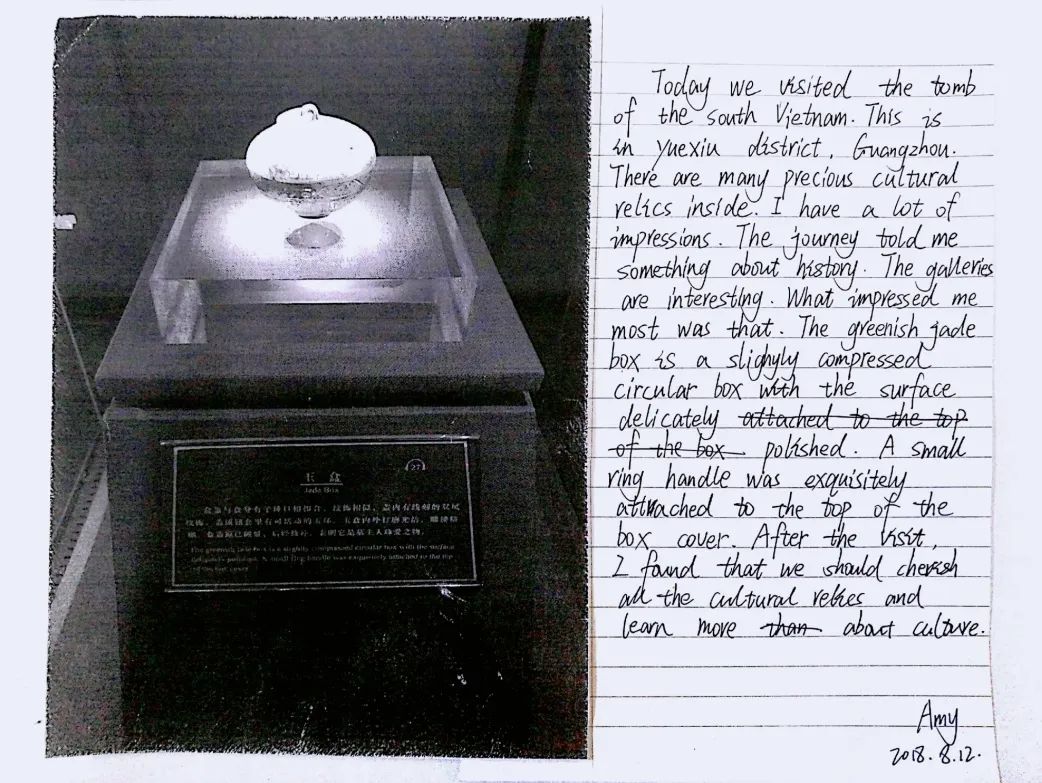 27
玉盒
Jade Box
盒盖与盒身有子母口相扣合，纹饰相似，盖内有线刻的双凤
纹饰，盖顶钮套里有可活动的玉环。玉盒内外打磨光洁，雕镂精
细，盒盖原已破裂，后经修补，表明它是墓主人珍爱之物。
The greenish jade box is a slightly compressed circular box with the surface
delicately polished. A small ring handle was exquisitely attached to the top
of the box cover.
Today we visited the tomb
of the south Vietnam. This is
in yuexiu district, Guangzhou.
There are many precious cultural
relics inside. I have a lot of
impressions. The journey told me
something about history. The galleries
are interesting. What impressed me
most was that. The greenish jade
box is a slighyly compressed
circular box with the surface
delicately attached to the top
of the box polished. A small
ring handle was exquisitely
attached to the top of the
box cover. After the visit,
I found that we should cherish
all the cultural relics and
learn more than about culture.
Amy
2018.8.12.